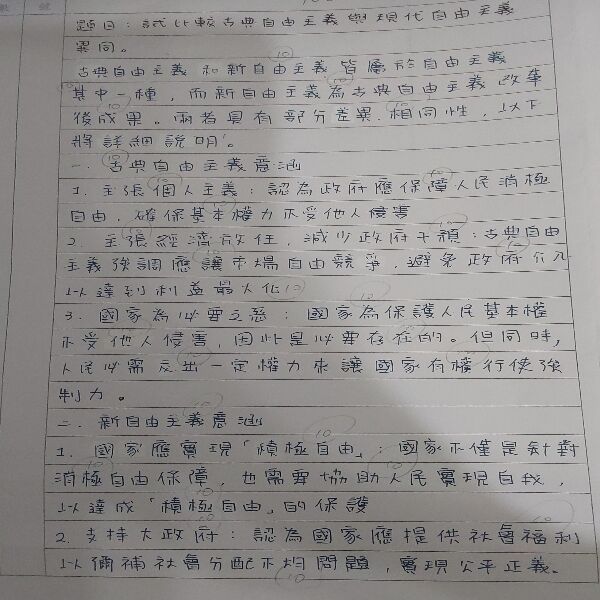 題目：試比較古典自由主義與現代自由主義
異同。
古典自由主義和新自由主義皆屬於自由主義
其中一種，而新自由主義為古典自由主義改革
後成果。兩者具有部分差異、相同性，以下
將詳細說明。
一、古典自由主義意涵
1. 主張個人主義：認為政府應保障人民消極
自由，確保基本權力不受他人侵害
2. 主張經濟放任，減少政府干預：古典自由
主義強調應讓市場自由競爭，避免政府介入
以達到利益最大化
3. 國家為必要之惡：國家為保護人民基本權
不受他人侵害，因此是必要存在的。但同時，
人民必需交出一定權力來讓國家有權行使強
制力。
二、新自由主義意涵
1. 國家應實現「積極自由」：國家不僅是針對
消極自由保障，也需要協助人民實現自我，
以達成「積極自由」的保護
2. 支持大政府：認為國家應提供社會福利
以彌補社會分配不均問題，實現公平正義。